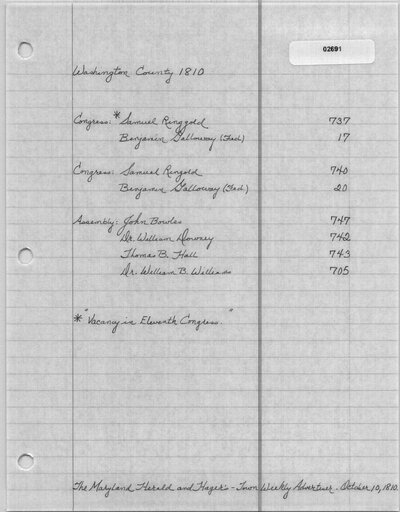 02691
Washington County 1810
Congress: * Samuel Ringgold 737
Benjamin Galloway (Fed.) 17
Congress: Samuel Ringold 740
Benjamin Galloway (Fed.) 20
Assembly: John Bowles 747
Dr. William Downey 742
Thomas B. Hall 743
Dr. William B. Williams 705
* "Vacancy in Eleventh Congress."
The Maryland Herald and Hager's-Town Weekly Advertiser. October 10, 1810.